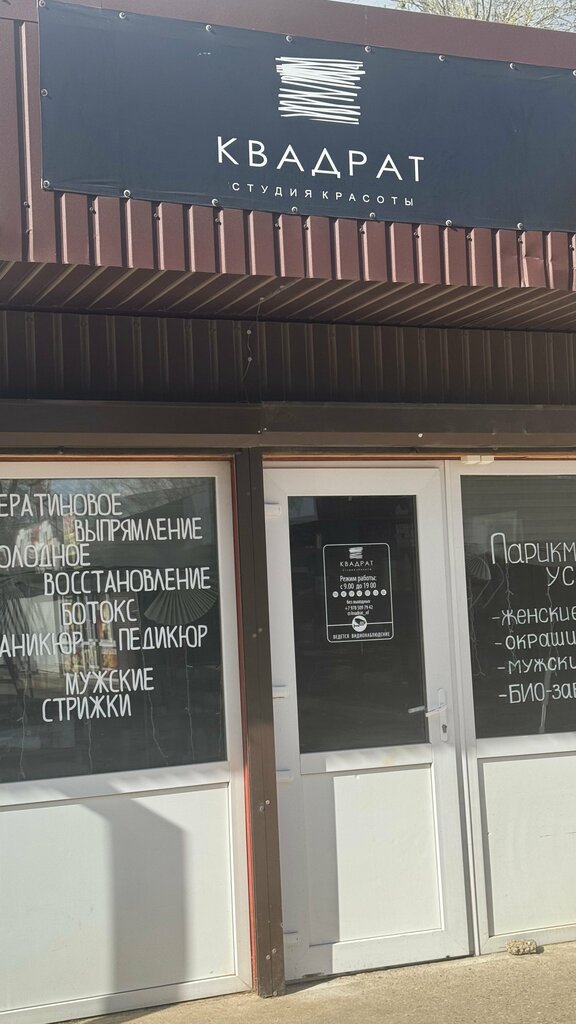 КВАДРАТ
СТУДИЯ КРАСОТЫ
ЕРАТИНОВОЕ
ВЫПРЯМЛЕНИЕ
ОЛОДНОЕ
ВОССТАНОВЛЕНИЕ
БОТОКС
АНИКЮР ПЕДИКЮР
МУЖСКИЕ
СТРИЖКИ
КВАДРАТ
СТУДИЯ КРАСОТЫ
Режим работы:
с 9.00 до 19 00
без выходных
ВЕДЕТСЯ ВИДЕОНАБЛЮДЕНИЕ
Парикм
УС
-женские
-окраши
-мужски
-БИО-зав